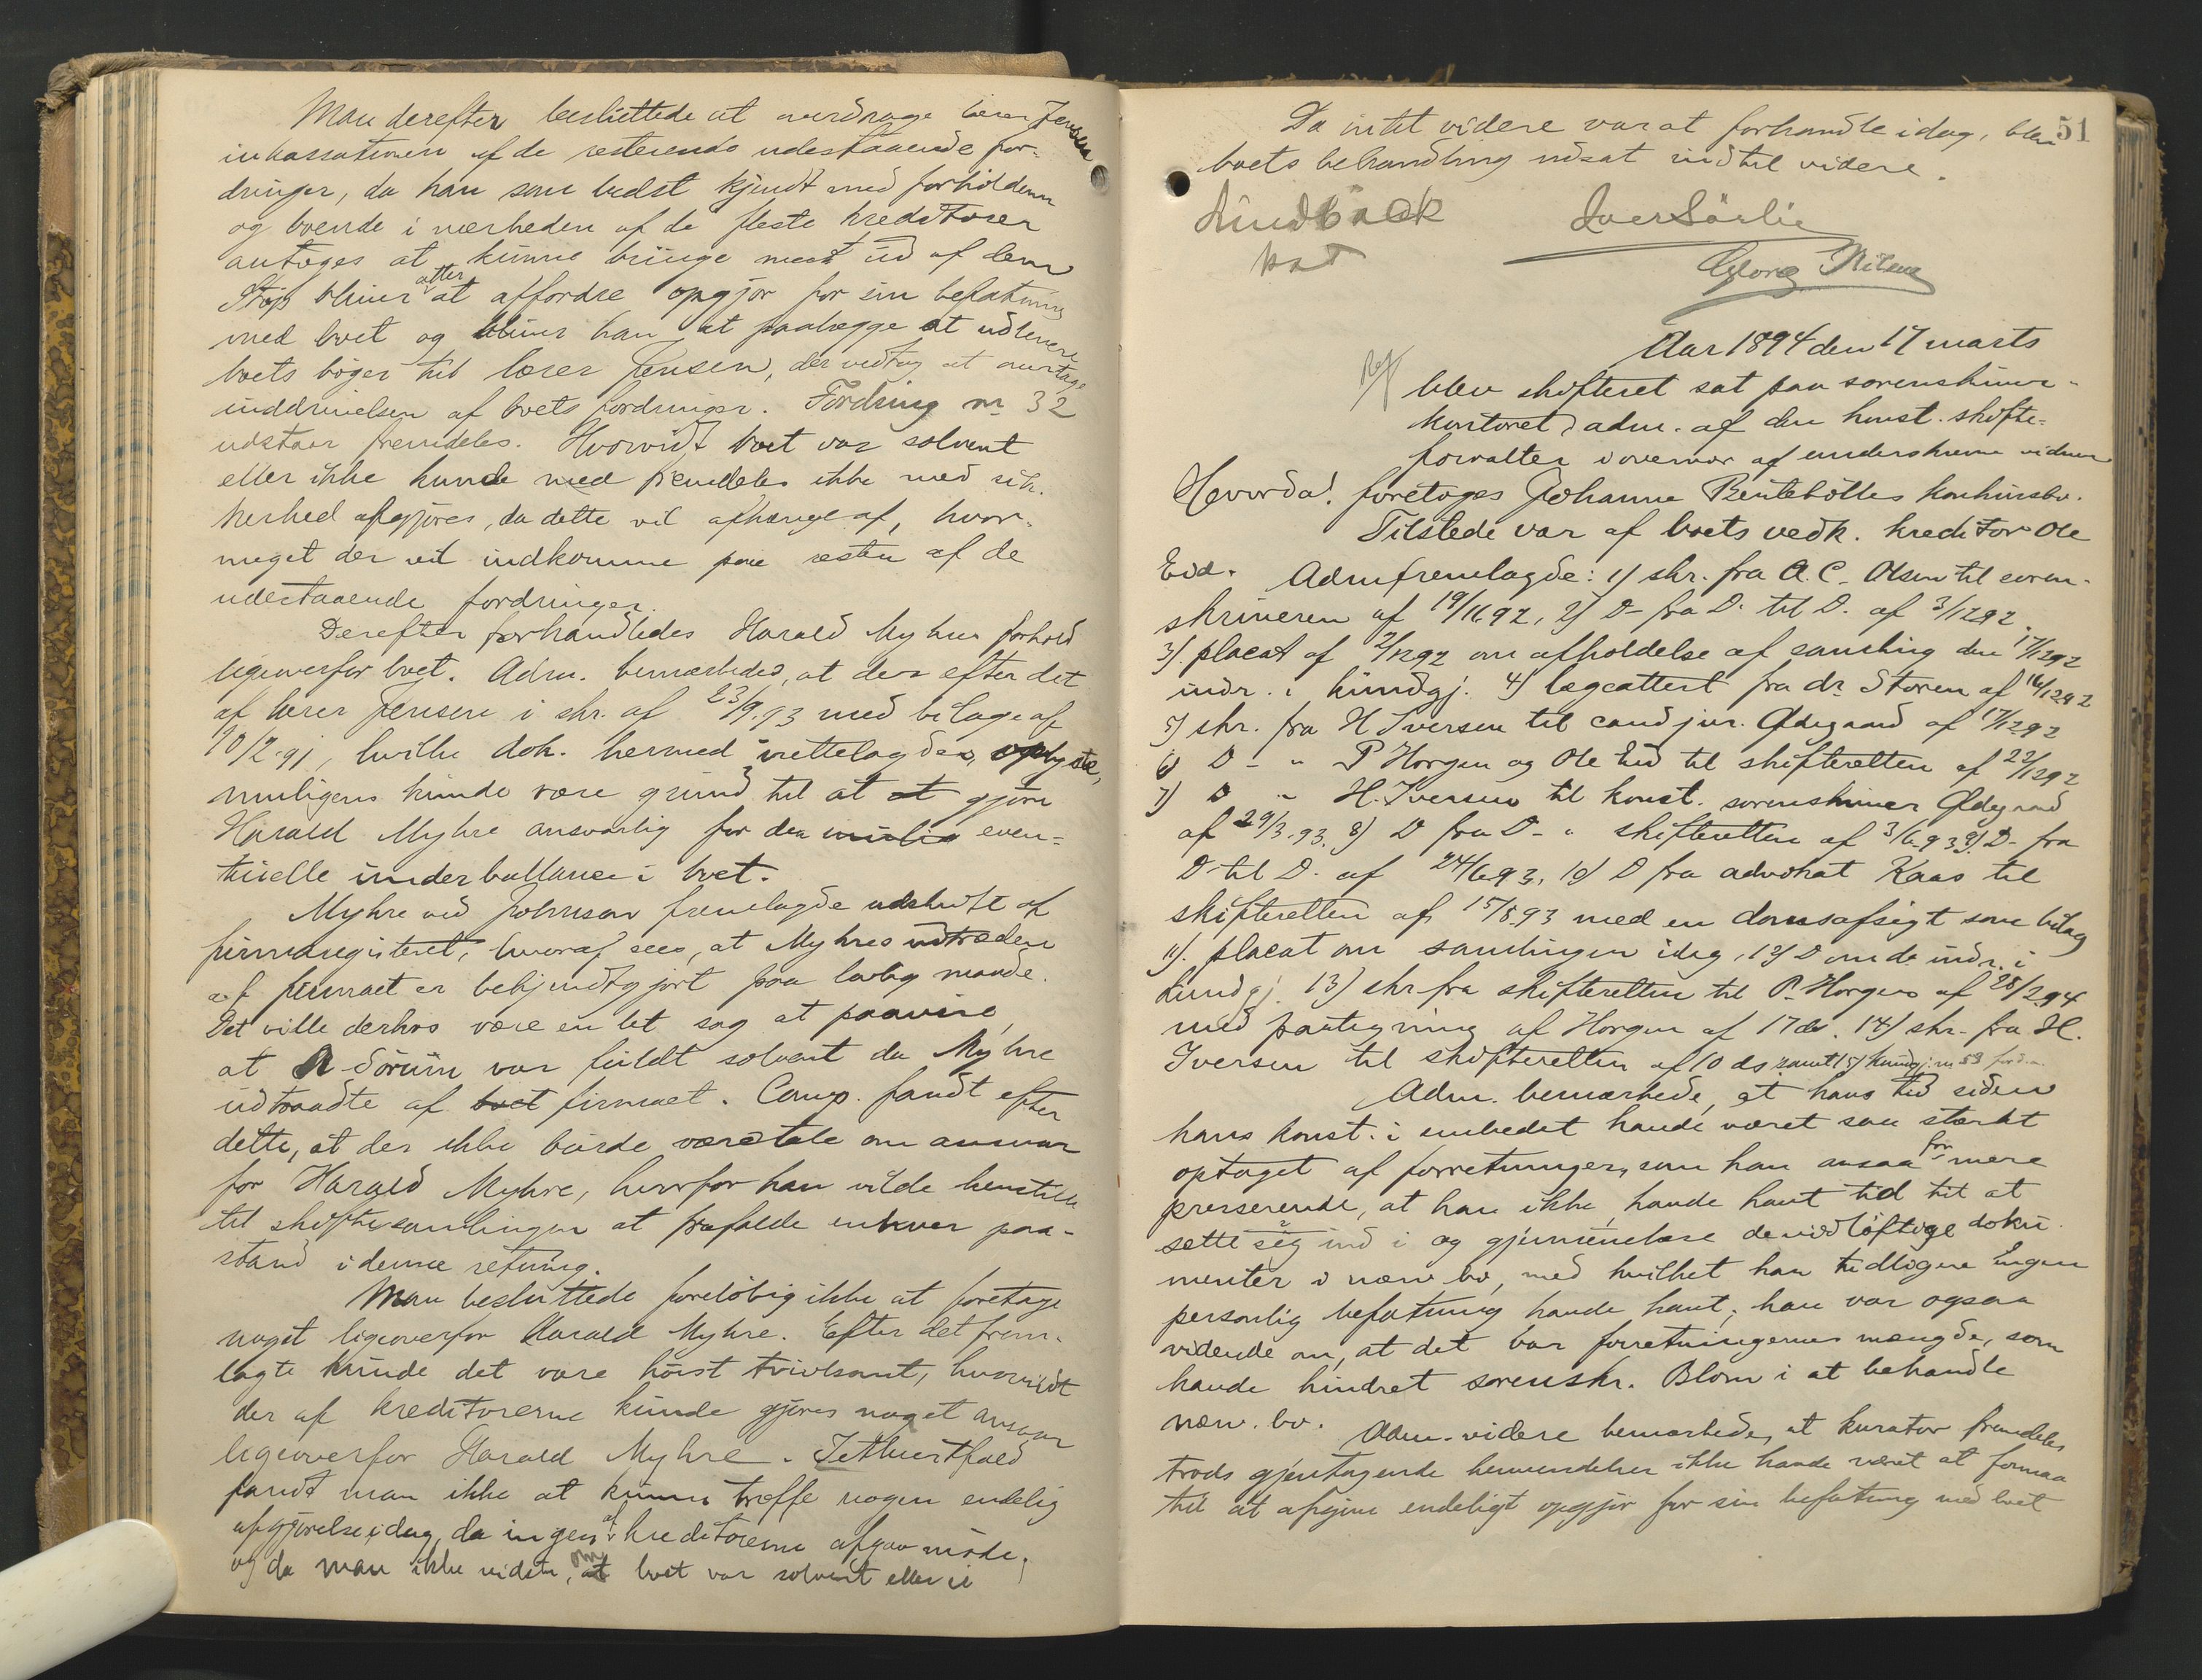 Man derefter besluttede at overdrage lærer Jensen
inkassationen af de resterende udestaaende for-
dringer, da han som bedst kjendt med forholdene
og boende i nærheden af de fleste kreditorer
antoges at kunne bringe mest ud af dem
Stöp bliver atter at affordre opgjør for sin befatning
med boet og bliver han at paalægge at udlevere
boets bøger til lærer Jensen, der vedtog at overtage
inddrivelsen af boets fordringer. Fordring nr 32
udstaar fremdeles. Hvorvidt boet var solvent
eller ikke kunde med fremdeles ikke med sik-
kerhed afgjøres, da dette vil afhænge af, hvor-
meget der vil indkomme paa resten af de
udestaaende fordringer.
Derefter forhandledes Harald Myhres forhold
ligeoverfor boet. Adm. bemærkede, at der efter det
af lærer Jensen i skr. af 23/9.93 med bilage af
10/2.91, hvilke dok. hermed irettelagdes, oplyste,
muligens kunde være grund til at at gjøre
Harald Myhre ansvarlig for den mulig even-
tuelle underballance i boet.
Myhre ved Johnson fremlagde udskrift af
firmaregisteret, hvoraf sees, at Myhres udtræden
af firmaet er bekjendtgjort paa lovlig maade.
Det ville derhos være en let sag at paavise,
at A Sörum var fuldt solvent da Myhre
udtraadte af boet firmaet. Comp. fandt efter
dette, at der ikke burde være tale om ansvar
for Harald Myhre, hvorfor han vilde henstille
til skiftesamlingen at frafalde enhver paa-
stand i denne retning.
Man besluttede foreløbig ikke at foretage
noget ligeoverfor Harald Myhre. Efter det frem-
lagte kunde det være høist tvivlsomt, hvorvidt
der af kreditorerne kunde gjøres noget ansvar
ligeoverfor Harald Myhre. Iethvertfald
fandt man ikke at kunne træffe nogen endelig
afgjørelse idag, da ingen af kreditorerne afgav møde,
og da man ikke vidste, om at boet var solvent eller ei
51
Da intet videre var at forhandle idag, blev
boets behandling udsat indtil videre.
Lindbäck
kst
Iver Sörlie
Georg Nilsen
Aar 1894 den 17 marts
blev skifteret sat paa sorenskriver-
kontoret, adm. af den konst. skifte-
forvalter i overvær af underskrevne vidner
Hvorda! foretoges Johanne Bentebölles konkursbo.
Tilstede var af boets vedk. kreditor Ole
Eid. Adm fremlagde: 1) skr. fra A. C. Olsen til soren-
skriveren af 19/11 92, 2) D- fra D. til D. af 3/12 92.
3) placat af 2/12 92 om afholdelse af samling den 17/12 92
indr. i kundgj. 4) lægeattest fra dr. Støren af 16/12 92
5) skr. fra H Iversen til cand jur. Ødegaard af 17/12 92
6) D - " P Horgen og Ole Eid til skifteretten af 22/12 92
7) D " H. Iversen til konst. sorenskriver Ødegaard
af 29/3.93. 8) D fra D - " skifteretten af 3/6.93 9) D- fra
D- til D. af 24/6.93, 10) D fra advokat Kaas til
skifteretten af 15/8.93 med en domsafsigt som bilag
11). placat om samlingen idag, 12) D om do indr. i
kundgj. 13) skr fra skifteretten til P. Horgen af 28/2.94
med paategning af Horgen af 17 ds. 14) skr. fra H.
Iversen til skifteretten af 10 ds samt 15) kundgj. nr 53
Adm. bemærkede, at hans tid siden
hans konst. i embedet havde været saa stærkt
optaget af forretninger, som han ansaa for mere
presserende, at han ikke havde havt tid til at
sætte sig ind i og gjennemlæse de vidløftige doku-
menter i nærv. bo, med hvilket han tidligere ingen
personlig befatning havde havt; han var ogsaa
vidende om, at det var forretningernes mængde, som
havde hindret sorenskr. Blom i at behandle
nærv. bo. Adm. videre bemærkede, at kurator fremdeles
trods gjentagende henvendelser ikke havde været at formaa
til at afgive endeligt opgjør for sin befatning med boet